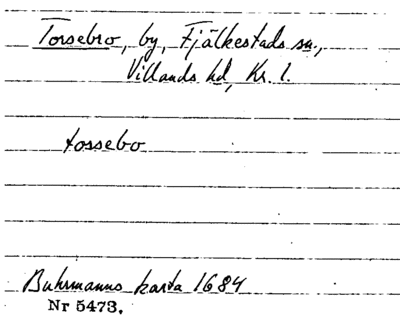 Torsebro, by, Fjälkestads sn.,
Villands hd, Kr. l.
tossebo
Buhrmanns karta 1684
Nr 5473.